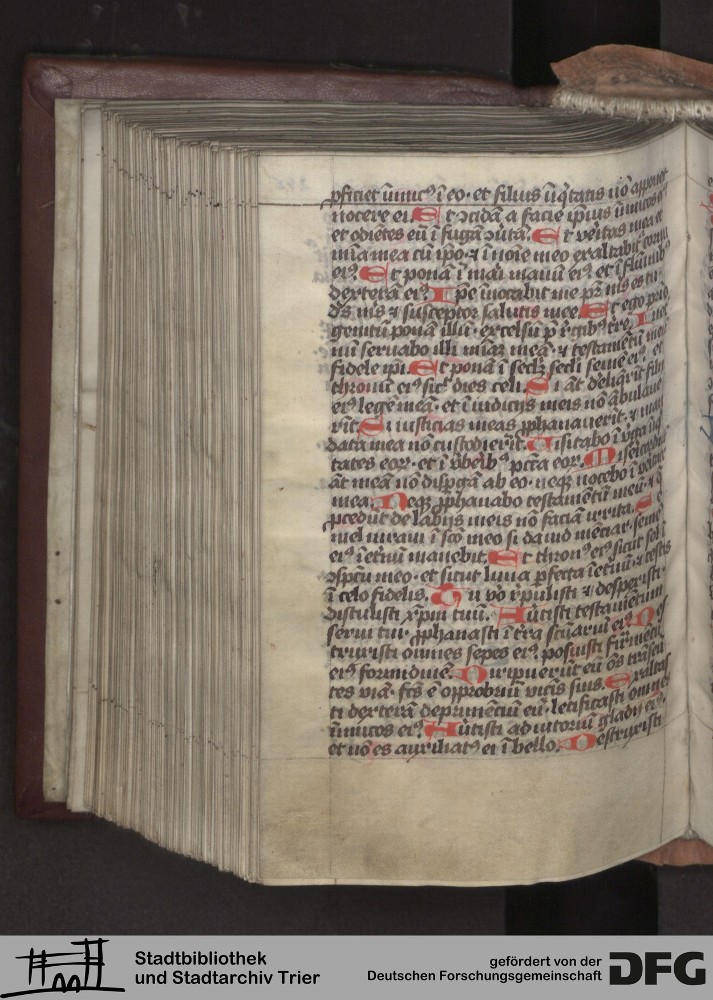 pficiet inimic⁹ ī eo· et filius iniq̄tatis nō apponet
nocere ei. Et ꝯcidā a facie ipius inimicos ei⁹
et odiētes eū ī fugā ꝯūtā. Et veritas mea et
mīa mea cū ipo· ⁊ ī noīe meo exaltabit᷑ cornu
ei⁹. Et ponā ī mari manū ei⁹ et ī flumīb⁹
dexterā ei⁹. Ipe īuocabit me pr̄ m̄s es tu·
ds m̄s ⁊ susceptor salutis mee. Et ego prīo
genitū ponā illū· excelsū p̄ r̄gib⁹ t̄re. In et̄
nū seruabo illi mīaꝫ meā· ⁊ testamētū meū
fidele ipi. Et ponā ī secl̄ꝫ secli semē ei⁹· et
thronū ei⁹ sic̄ dies celi. Si aūt deliq̄rīt filii
ei⁹ legē meā· et ī iudicijs meis nō ābulaue
rīt. Si iusticias meas ꝓphanauerīt· ⁊ man
data mea nō custodierīt. Uisitabo ī v̄ga īiq̄
tates eoꝝ· et ī v̄berib⁹ pctā eoꝝ. Misericordiā
āt meā nō disp̄gā ab eo· neqꝫ nocebo ī veritate
mea. Neqꝫ ꝓphanabo testamētū meū· ⁊ q̄
pcedūt de labijs meis nō faciā irrita. Se
mel iuraui ī sc̄o meo si dauid mēciar· semē
ei⁹ ī etnū manebit. Et thron⁹ ei⁹ sicut sol ī
ꝯspectu meo· et sicut luna pfecta ī etnū· ⁊ testis
ī celo fidelis. Tu vo r̄pulisti ⁊ despexisti·
distulisti xp̄m tuū. Au̇tisti testamētum
serui tui· ꝓphanasti ī t̄ra sc̄uariū ei⁹. Des
truxisti omnes sepes ei⁹· posuisti firmētū
ei⁹ formidinē. Diripuerūt eū oēs trāseū
tes viā· fc̄s ē opprobriū vicīs suis. Exaltas
ti dexterā deprimēciū eū· letificasti omnes
inimicos ei⁹. Au̇tisti adiutoriū gladij ei⁹·
et nō es auxiliat⁹ ei ī bello. Destruxisti
Stadtbibliothek
und Stadtarchiv Trier
gefördert von der
Deutschen Forschungsgemeinschaft DFG